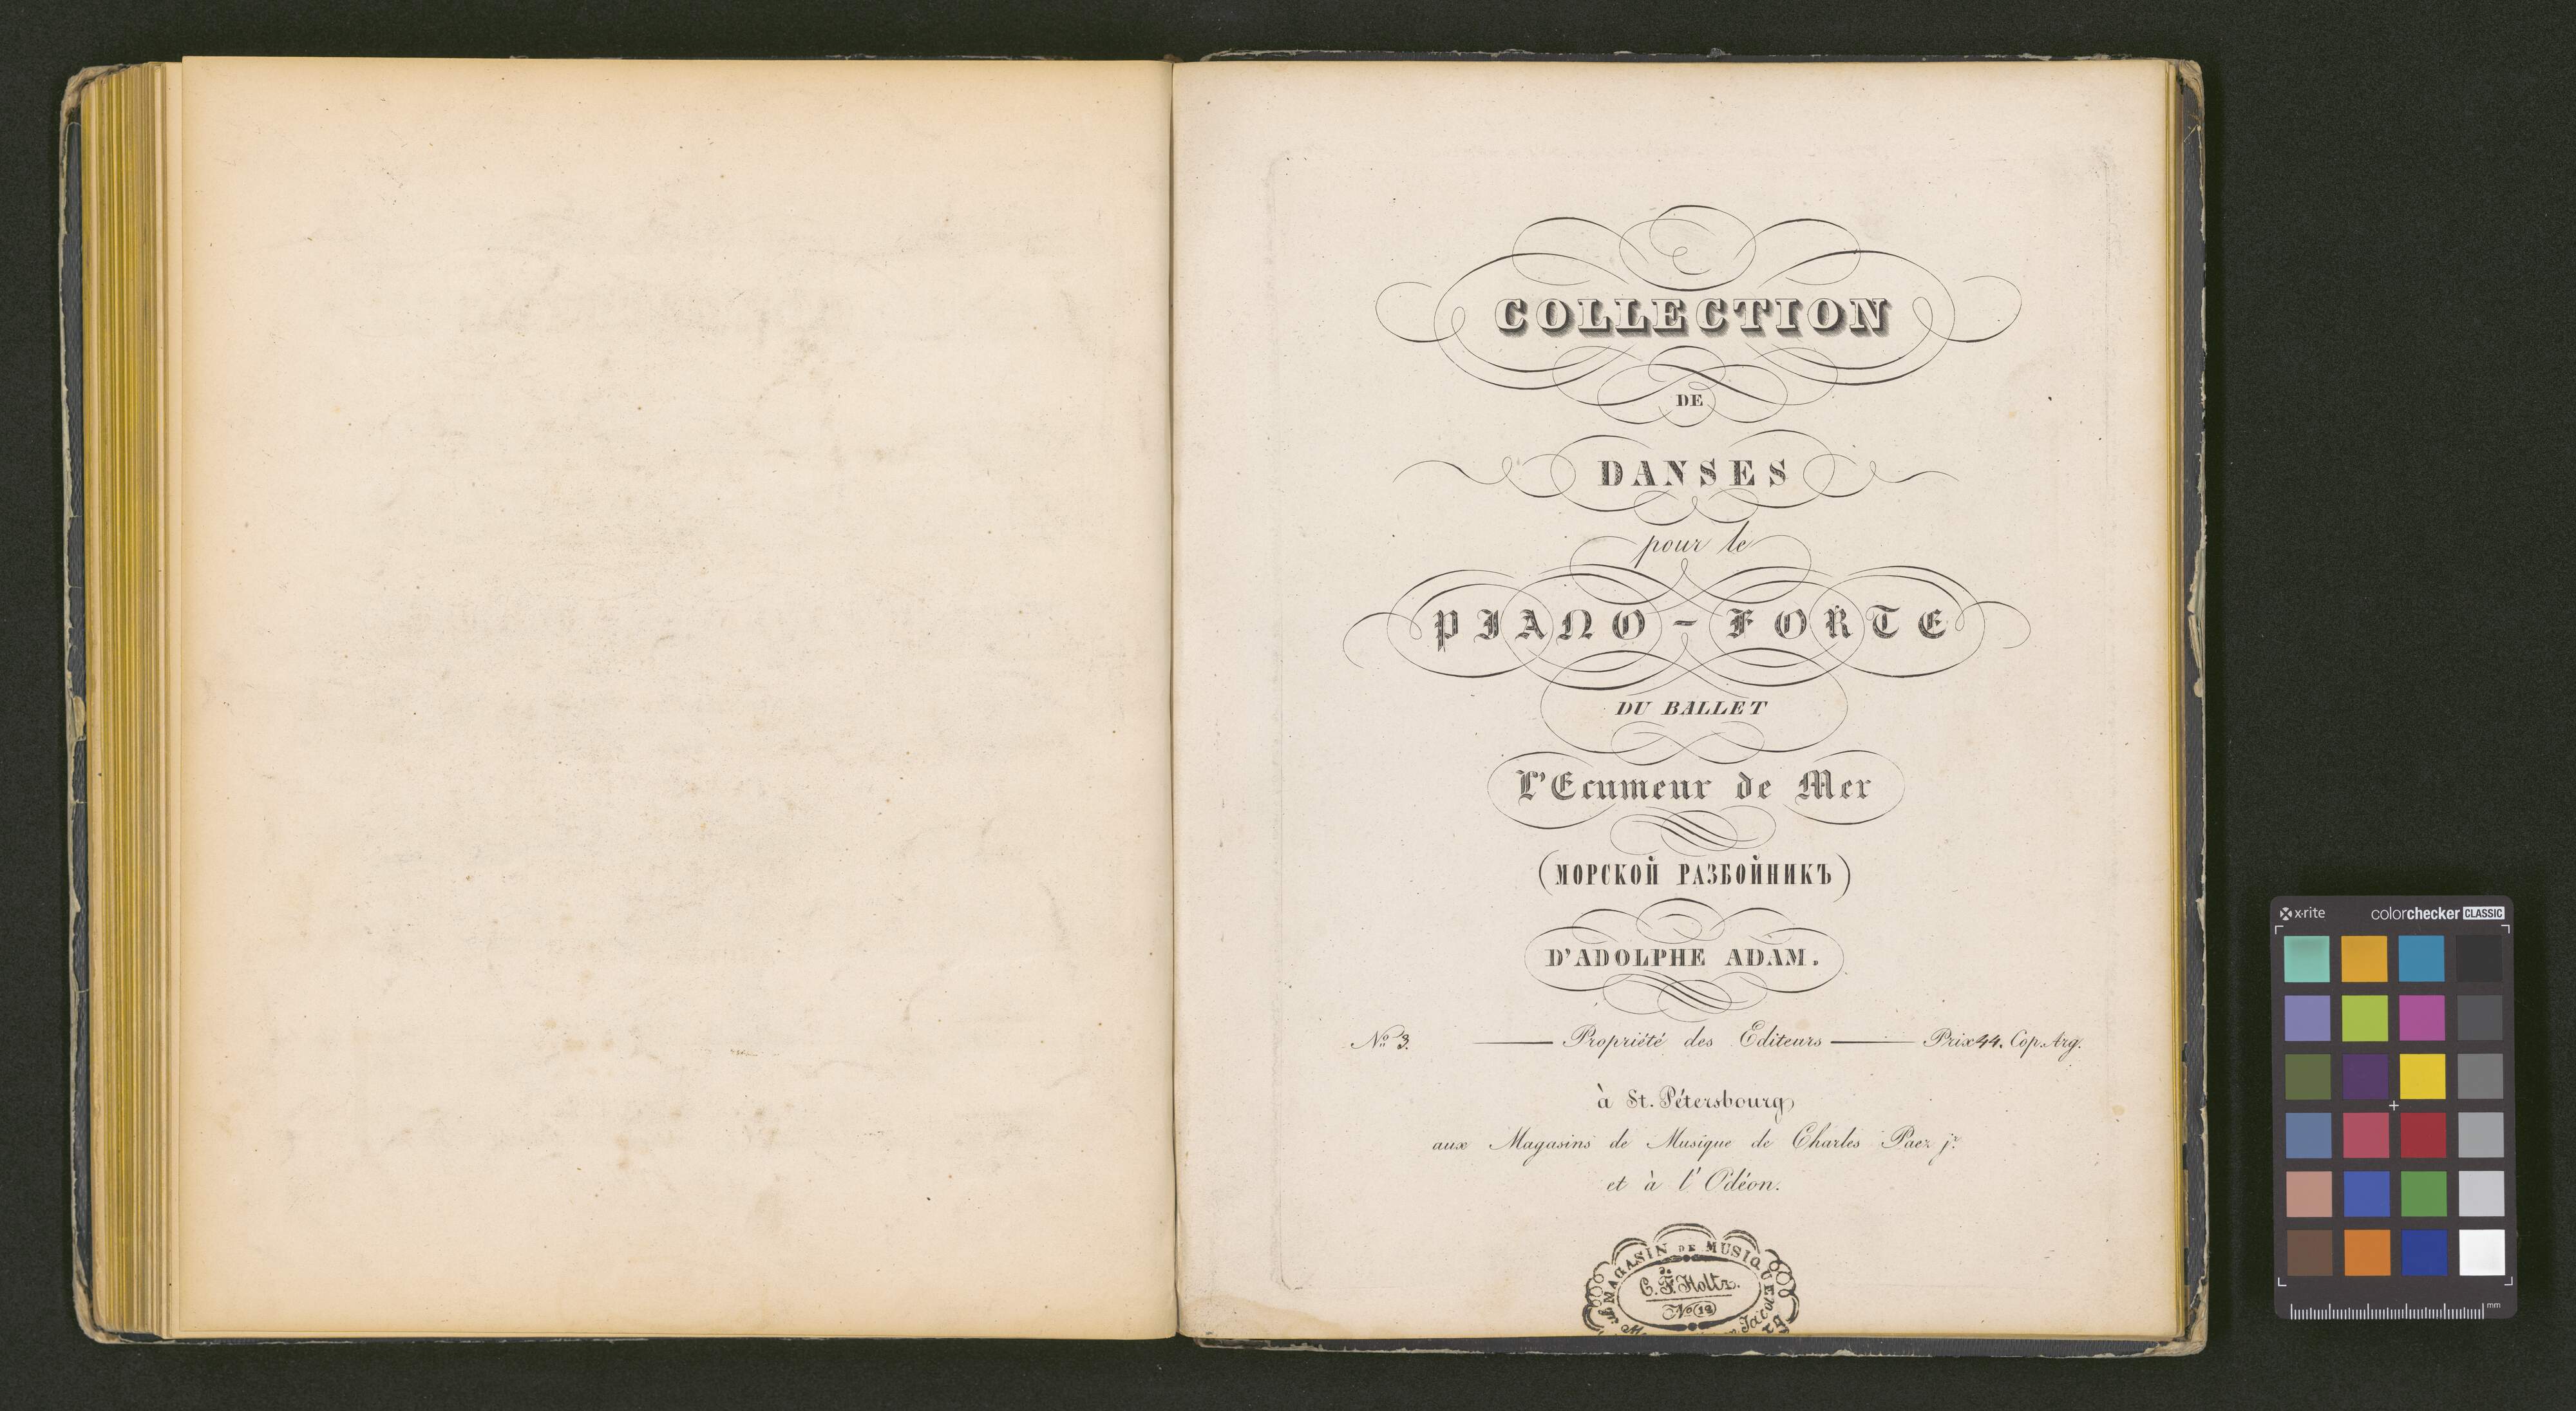 COLLECTION
DE
DANSES
pour le
PIANO-FORTE
DU BALLET
L'Ecumeur de Mer
(МОРСКОЙ РАЗБОЙНИКЪ)
D'ADOLPHE ADAM.
No. 3. Propriété des Editeurs Prix 44. Cop. Arg.
à St. Pétersbourg
aux Magasins de Musique de Charles Paez jr.
et à l'Odéon.
MAGASIN DE MUSIQUE
C. F. Holtz.
No (12)
x·rite colorchecker CLASSIC
mm